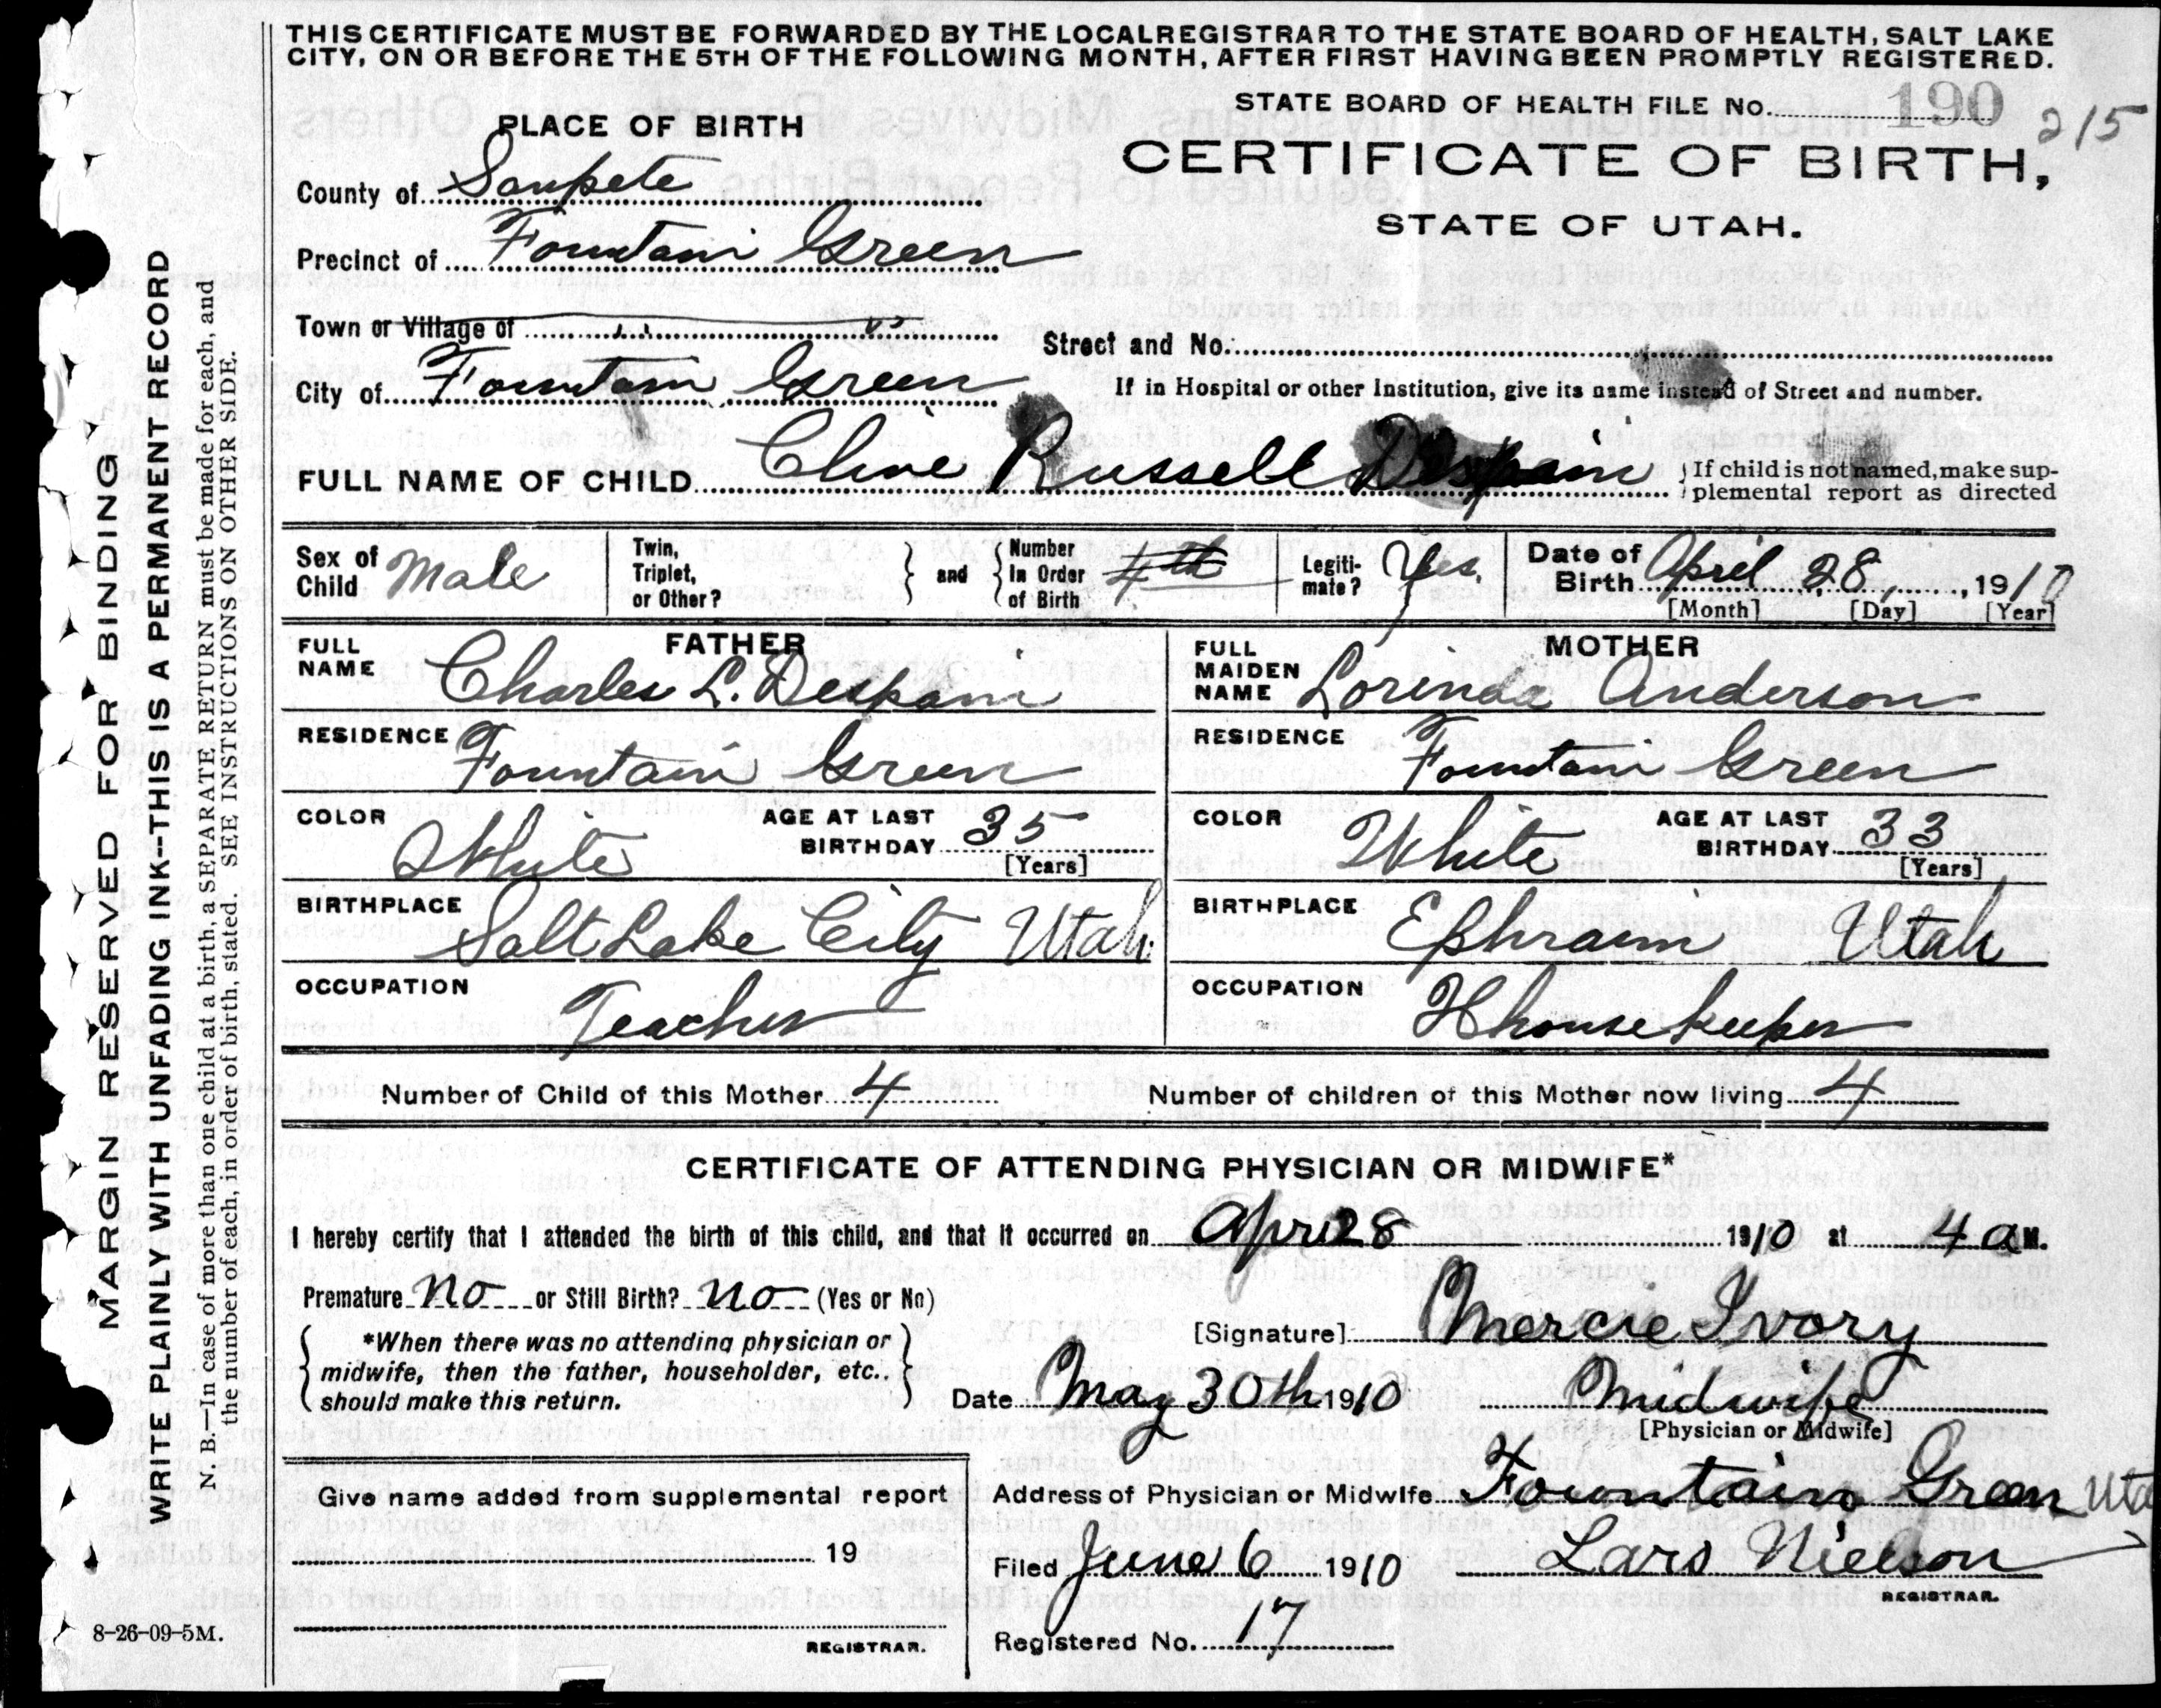 THIS CERTIFICATE MUST BE FORWARDED BY THE LOCAL REGISTRAR TO THE STATE BOARD OF HEALTH, SALT LAKE
CITY, ON OR BEFORE THE 5TH OF THE FOLLOWING MONTH, AFTER FIRST HAVING BEEN PROMPTLY REGISTERED.
STATE BOARD OF HEALTH FILE No. 190 215
PLACE OF BIRTH
CERTIFICATE OF BIRTH,
STATE OF UTAH.
County of Sanpete
Precinct of Fountain Green
Town or Village of
Street and No.
City of Fountain Green
If in Hospital or other Institution, give its name instead of Street and number.
FULL NAME OF CHILD Clive Russell Despain
If child is not named, make sup-
plemental report as directed
Sex of Child Male
Twin, Triplet, or Other?
and
Number In Order of Birth 4th
Legiti-mate? Yes.
Date of Birth April 28, 1910
[Month] [Day] [Year]
FATHER
FULL NAME Charles L. Despain
RESIDENCE Fountain Green
COLOR White
AGE AT LAST BIRTHDAY 35
[Years]
BIRTHPLACE Salt Lake City Utah
OCCUPATION Teacher
MOTHER
FULL MAIDEN NAME Lorinda Anderson
RESIDENCE Fountain Green
COLOR White
AGE AT LAST BIRTHDAY 33
[Years]
BIRTHPLACE Ephraim Utah
OCCUPATION Hhousekeeper
Number of Child of this Mother 4
Number of children of this Mother now living 4
CERTIFICATE OF ATTENDING PHYSICIAN OR MIDWIFE*
I hereby certify that I attended the birth of this child, and that it occurred on Apr 28 1910 at 4 a M.
Premature no or Still Birth? no (Yes or No)
*When there was no attending physician or
midwife, then the father, householder, etc..
should make this return.
[Signature] Mercie Ivory
Date May 30th 1910
Midwife
[Physician or Midwife]
Give name added from supplemental report
19
REGISTRAR.
Address of Physician or Midwife Fountain Green Uta
Filed June 6 1910
Lars Nielson
REGISTRAR.
Registered No. 17
8-26-09-5M.
MARGIN RESERVED FOR BINDING
WRITE PLAINLY WITH UNFADING INK--THIS IS A PERMANENT RECORD
N. B.—In case of more than one child at a birth, a SEPARATE RETURN must be made for each, and
the number of each, in order of birth, stated. SEE INSTRUCTIONS ON OTHER SIDE.